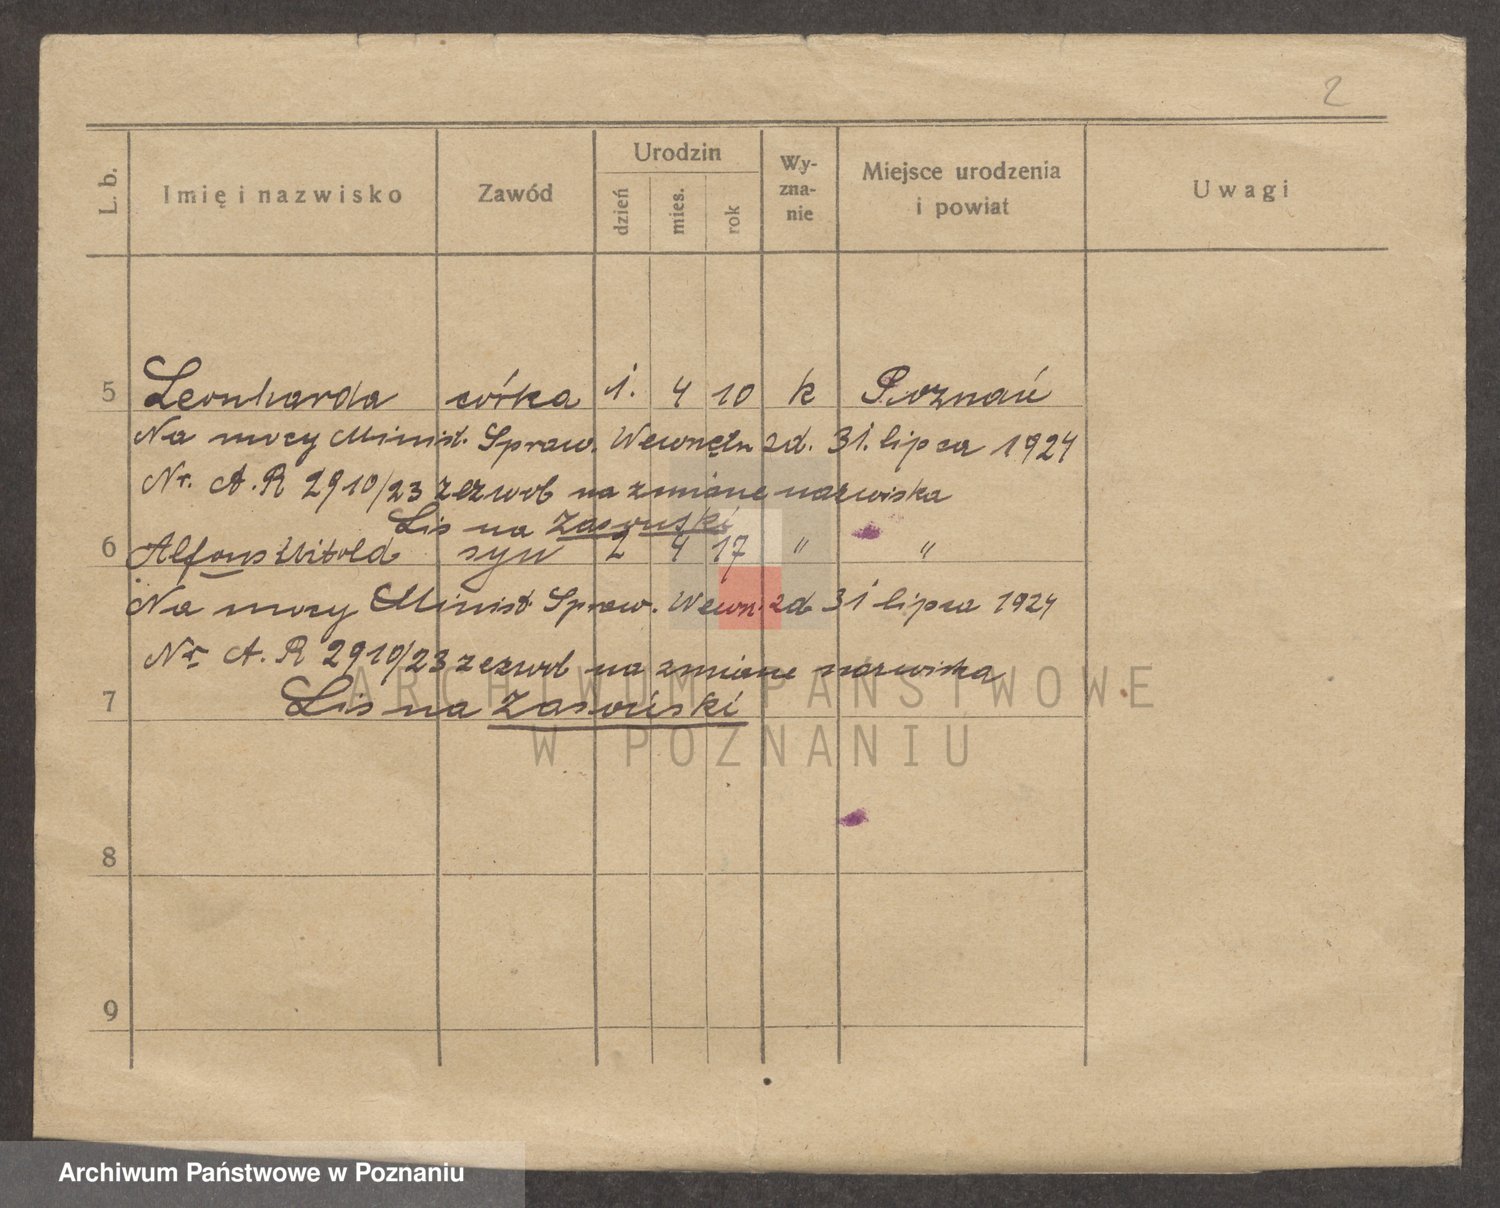 2
L. b.
Imię i nazwisko
Zawód
Urodzin
dzień
mies.
rok
Wy-
zna-
nie
Miejsce urodzenia
i powiat
Uwagi
5 Leonharda córka 1. 4 10 k Poznań
Na mocy Minist. Spraw. Wewnętrz zd. 31. lipca 1924
Nr. A. R 2910/23 zezwol na zmianę nazwiska
Lis na
6 Alfons Witold syn 2 4 17 " "
Na mocy Minist Spraw. Wewn. zd 31 lipca 1924
Nr A. R 2910/23 zezwol na zmianę nazwiska
7 Lis na
8
9
ARCHIWUM PAŃSTWOWE
W POZNANIU
Archiwum Państwowe w Poznaniu